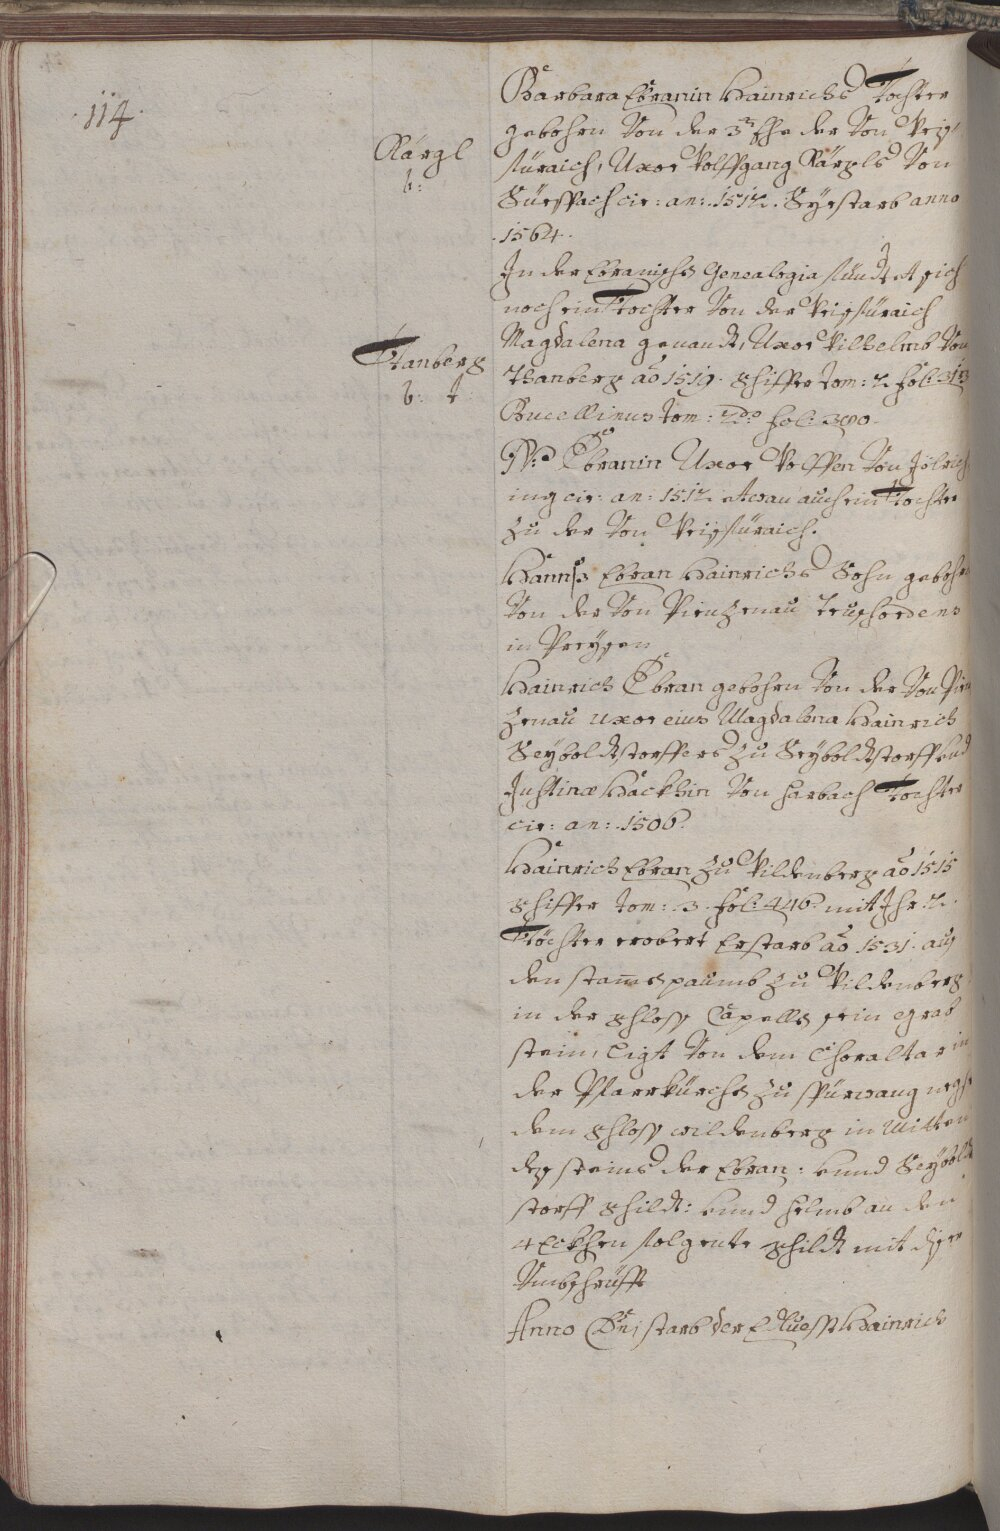 114.
Barbara Ebranin Hainrichs Tochter
gebohrn Von der 3tn Ehe der Von Preÿ-
Kärgl
b:
süraich, Uxor Wolffgang Kärgls Von
Süesspach cir: an: 1512. Sÿe starb anno
1564.
In der Ebranischen Genealogia findet sich
noch ein Tochter Von der Preisüraich
Magdalena genandt, Uxor Wilhelmb Von
Thanberg
b: t
Thanberg aõ 1519. Schiffer tom: 2. fol: 313
Bucellinus tom: 2do fol: 390.
N: Ebranin Uxor Wolffen Von
ing cir: an: 1512. etwan auch ein Tochter
zu der Von Preisüraich.
Hannß Ebran Hainrichs Sohn gebohrn
Von der Von Pienzenau Teusch ordens
in Preÿsen
Hainrich Ebran gebohrn Von der Von Pien
zenau uxor eius Magdalena Hainrich
Seÿboldtstorffers zu Seÿboldtstorff und
Justinæ Häckhin Von Harbach Tochter
cir: an: 1506.
Hainrich Ebran zu Wildenberg aõ 1515
Schiffer tom: 3. fol: 446. mit Ihr 2.
Töchter erobert Erstarb aõ 1531. auß
den stam̃spaumb zu Wildenberg
in der schloss Capelln sein grab
stein, Ligt Von dem Choraltar in
der Pfarrkürchen zu
dem schloss wildenberg in Mitten
deß steins der Ebran: Unnd Seÿboldt
storff schildt: Unnd helmb an den
4 Eckhen folgente schildt mit diser
Umbschrüfft
Anno Dñi starb der Edl Vesst Hainrich